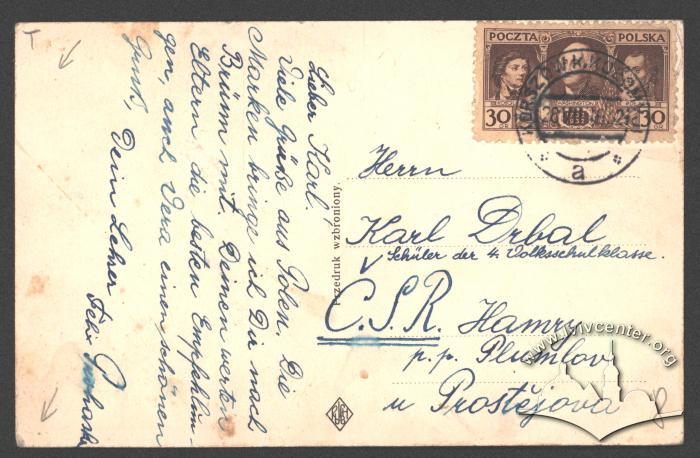 Lieber Karl.
Viele Grüße aus Polen. Die
Marken bringe ich Dir nach
Brünn mit. Deinen werten
Eltern die besten Empfehlun-
gen, auch Vera einen schönen
Gruß, Dein Lehrer
Felix
Przedruk wzbroniony.
POCZTA POLSKA
30 30
WASHINGTON
a
Herrn
Karl Drbal
Schüler der 4. Volksschulklasse.
Č.S.R. Hamry
p.p. Plumlov
u Prostějova
www.lvivcenter.org
T